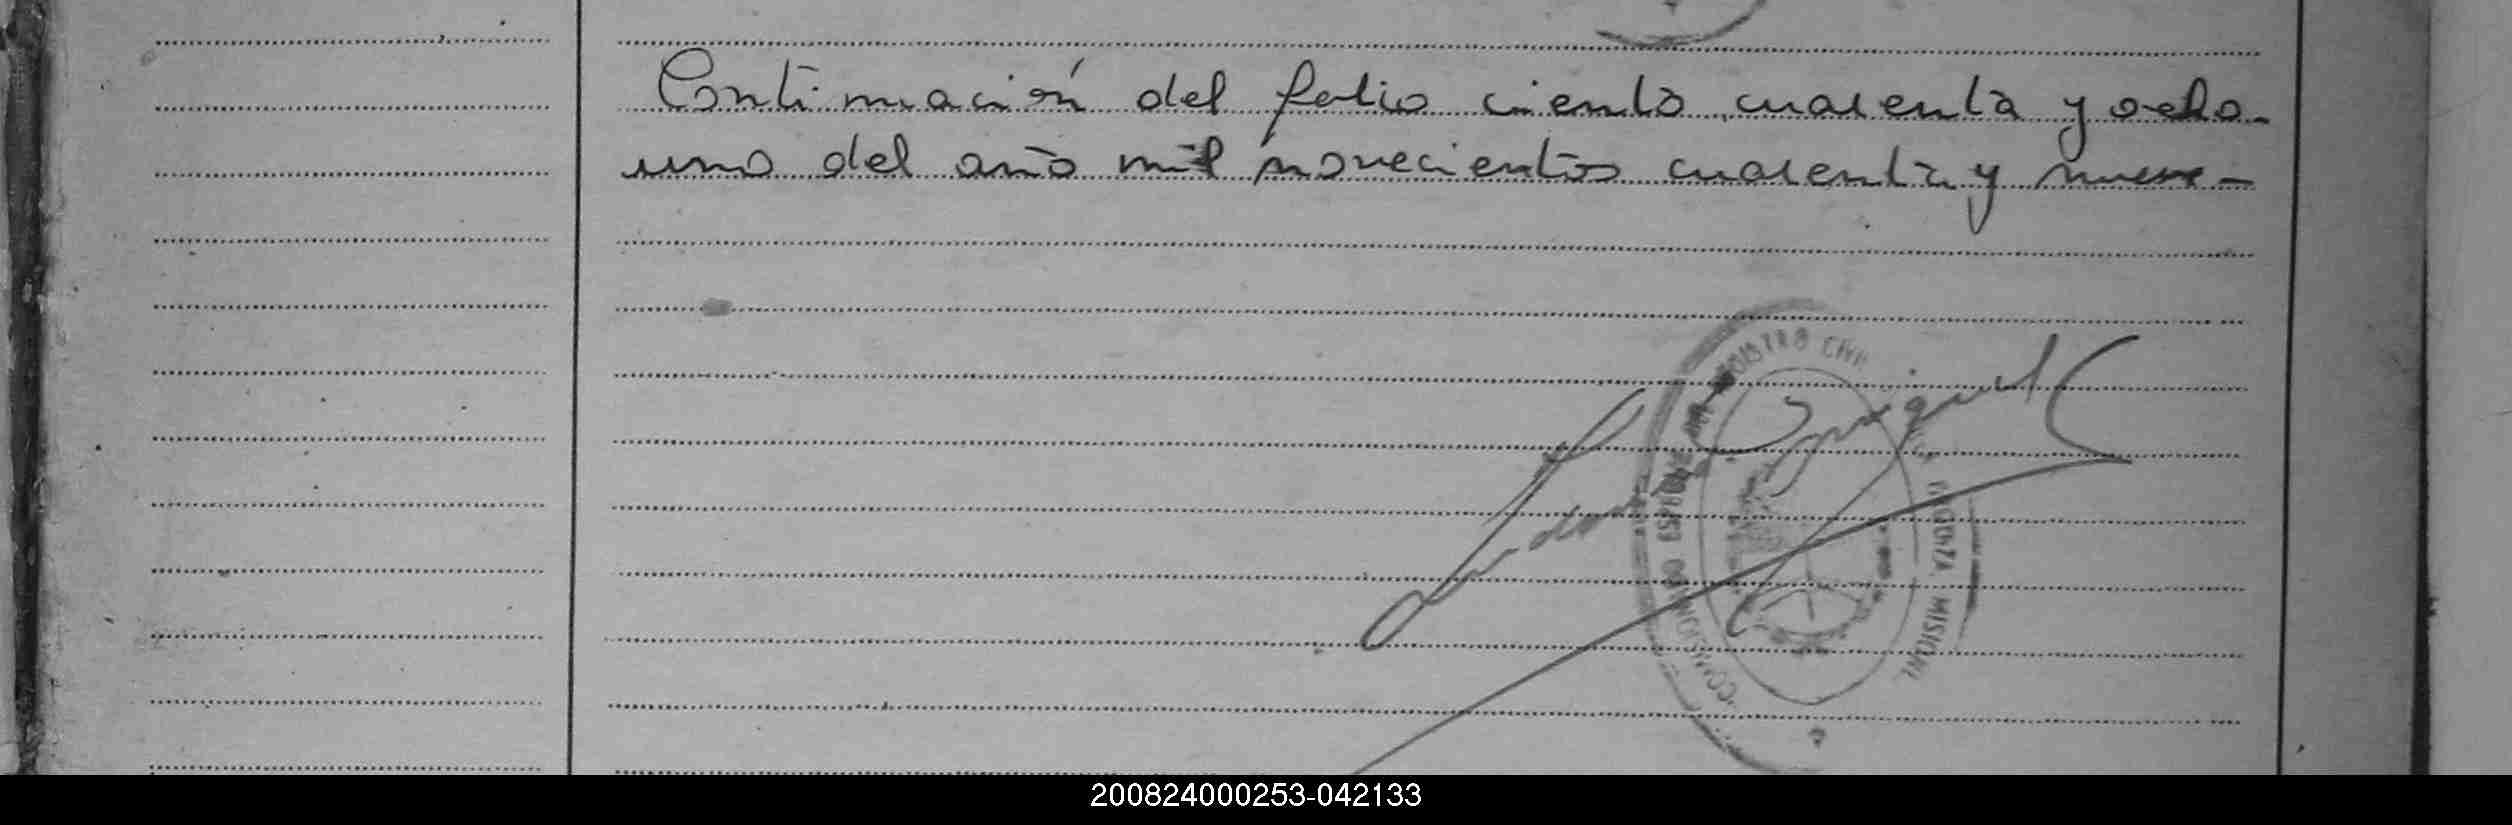 Continuación del folio ciento cuarenta y ocho-
uno del año mil novecientos cuarenta y nueve-
REGISTRO CIVIL
MISIONAL
200824000253-042133